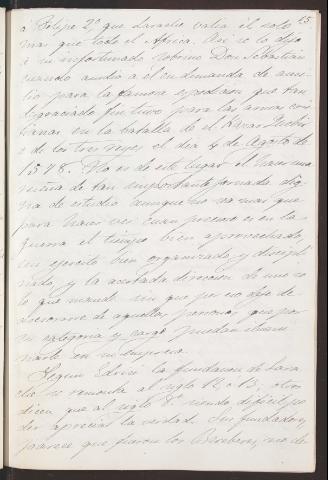 15
á Felipe 2º que Larache valia él solo
mas que todo el Africa. Así se lo dijo
á su infortunado sobrino Don Sebastian
cuando acudió a él en demanda de auxi-
lio para la famosa espedicion que tan
desgraciado fin tuvo para las armas cris-
tianas en la batalla de el Kazar Kebir
ó de los tres reyes el dia 4 de Agosto de
1578. No es de este lugar el hacer una
reseña de tan importante jornada dig-
na de estudio aunque no sea mas que
para hacer ver cuan precioso es en la
guerra el tiempo bien aprovechado,
un ejercito bien organizado y discipli-
nado, y la acertada direccion de uno so-
lo que mande sin que por eso deje de
asesorarse de aquellas personas que por
su categoria y cargo puedan ilumi-
narle en su empresa.
Segun Edrisi la fundacion de Lara-
che se remonta al siglo 12 o 13, otros
dicen que al siglo 8º siendo dificil po-
der apreciar la verdad. Sus fundadores,
parece que fueron los Bereberes, uno de